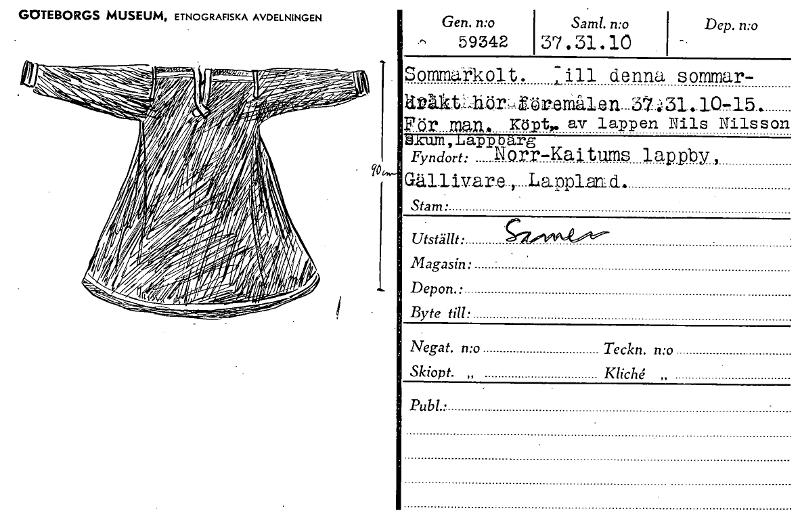 GÖTEBORGS MUSEUM, ETNOGRAFISKA AVDELNINGEN
90 cm
Gen. n:o Saml. n:o Dep. n:o
59342 37.31.10
Sommarkolt. Till denna sommar-
dräkt hör föremålen 37.31.10-15.
För man. Köpt. av lappen Nils Nilsson
Skum, Lappbärg
Fyndort: Norr-Kaitums lappby,
Gällivare, Lappland.
Stam:
Utställt: Samer
Magasin:
Depon.:
Byte till:
Negat. n:o Teckn. n:o
Skiopt. „ Kliché „
Publ.: